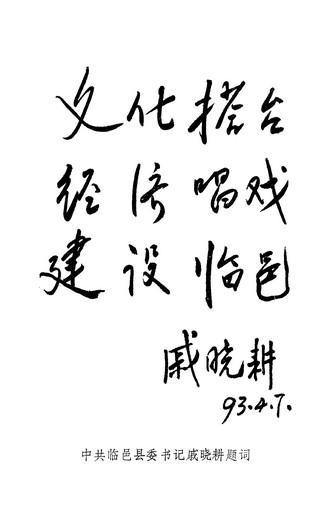 文化搭台
经济唱戏
建设临邑
戚晓耕
93.4.7.
中共临邑县委书记戚晓耕题词